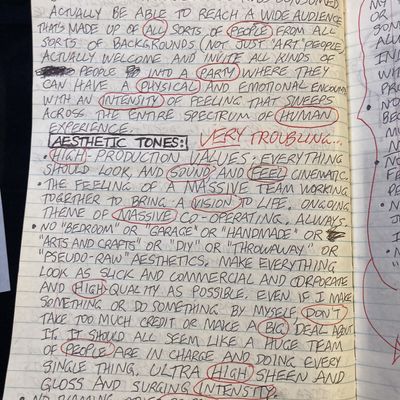 ACTUALLY BE ABLE TO REACH A WIDE AUDIENCE
THAT'S MADE UP OF ALL SORTS OF PEOPLE FROM ALL
SORTS OF BACKGROUNDS (NOT JUST "ART" PEOPLE)
ACTUALLY WELCOME AND INVITE ALL KINDS OF
PEOPLE INTO A PARTY WHERE THEY
CAN HAVE A PHYSICAL AND EMOTIONAL ENCOUNTER
WITH AN INTENSITY OF FEELING THAT SWEEPS
ACROSS THE ENTIRE SPECTRUM OF HUMAN
EXPERIENCE.
AESTHETIC TONES: VERY TROUBLING...
• HIGH-PRODUCTION VALUES: EVERYTHING
SHOULD LOOK, AND SOUND AND FEEL CINEMATIC.
• THE FEELING OF A MASSIVE TEAM WORKING
TOGETHER TO BRING A VISION TO LIFE. ONGOING
THEME OF MASSIVE CO-OPERATING, ALWAYS.
• NO "BEDROOM" OR "GARAGE" OR "HANDMADE" OR
"ARTS AND CRAFTS" OR "DIY" OR "THROWAWAY" OR
"PSEUDO-RAW" AESTHETICS. MAKE EVERYTHING
LOOK AS SLICK AND COMMERCIAL AND CORPORATE
AND HIGH-QUALITY AS POSSIBLE. EVEN IF I MAKE
SOMETHING OR DO SOMETHING BY MYSELF, DON'T
TAKE TOO MUCH CREDIT OR MAKE A BIG DEAL ABOUT
IT. IT SHOULD ALL SEEM LIKE A HUGE TEAM
OF PEOPLE ARE IN CHARGE AND DOING EVERY
SINGLE THING. ULTRA HIGH SHEEN AND
GLOSS AND SURGING INTENSITY.